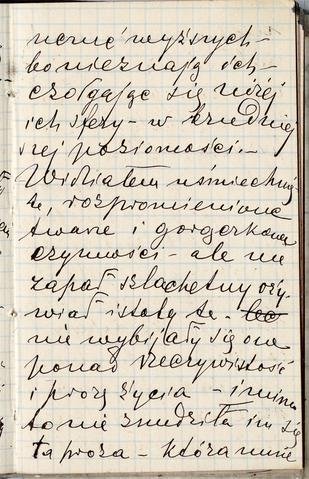 uczuć wyższych -
bo nie znają ich -
czołgając się niżej
ich sfery - w brudniej
szej poziomości. -
Widziałem uśmiechnię-
te, rozpromienione
twarze i gorączkowe
czynności - ale nie
zapał szlachetny oży
wiał istoty te. -
nie wybijały się one
ponad rzeczywistość
i prozę życia - i mimo
to nie znudziła im się
ta proza - która mnie